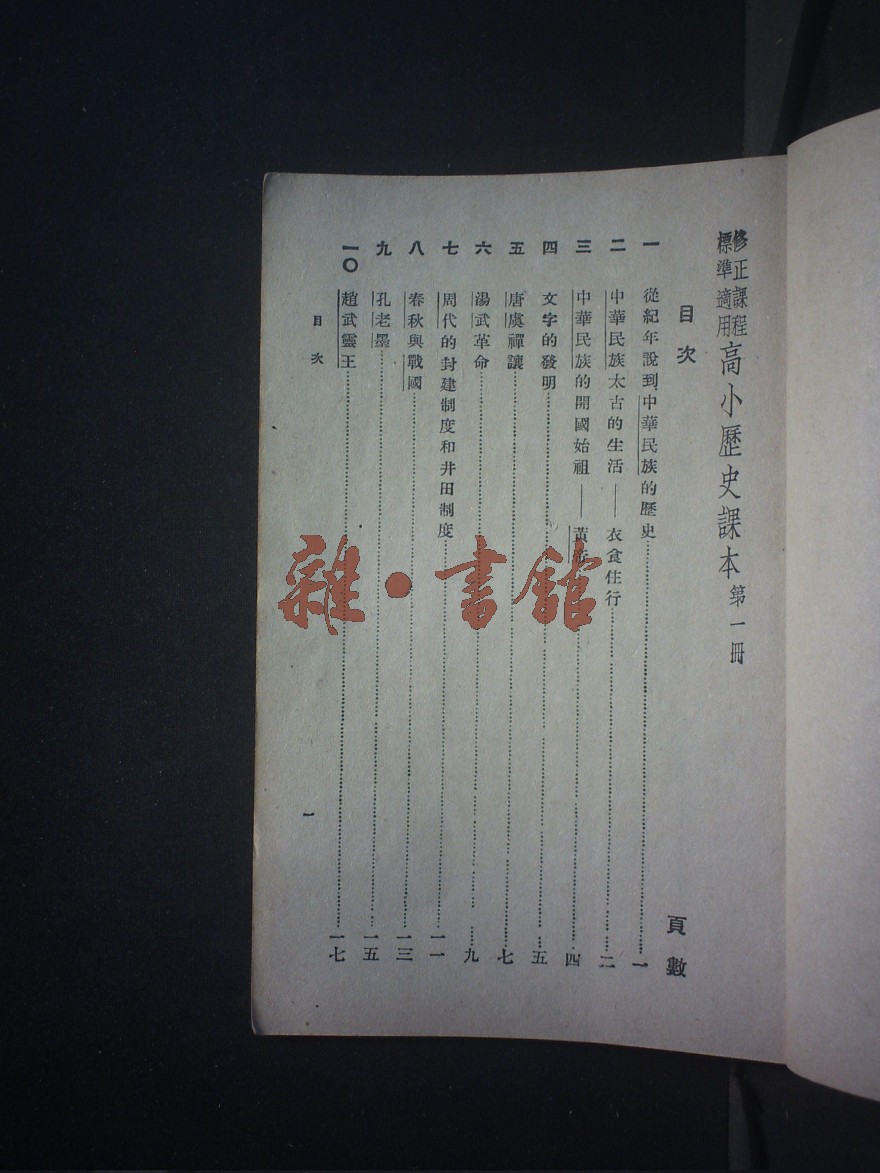 修正課程標準適用 高小歷史課本 第一冊
目次
頁數
一 從紀年說到中華民族的歷史 一
二 中華民族太古的生活——衣食住行 二
三 中華民族的開國始祖——黃帝 四
四 文字的發明 五
五 唐虞禪讓 七
六 湯武革命 九
七 周代的封建制度和井田制度 一一
八 春秋與戰國 一三
九 孔老墨 一五
一〇 趙武靈王 一七
目次
一
雜·書館